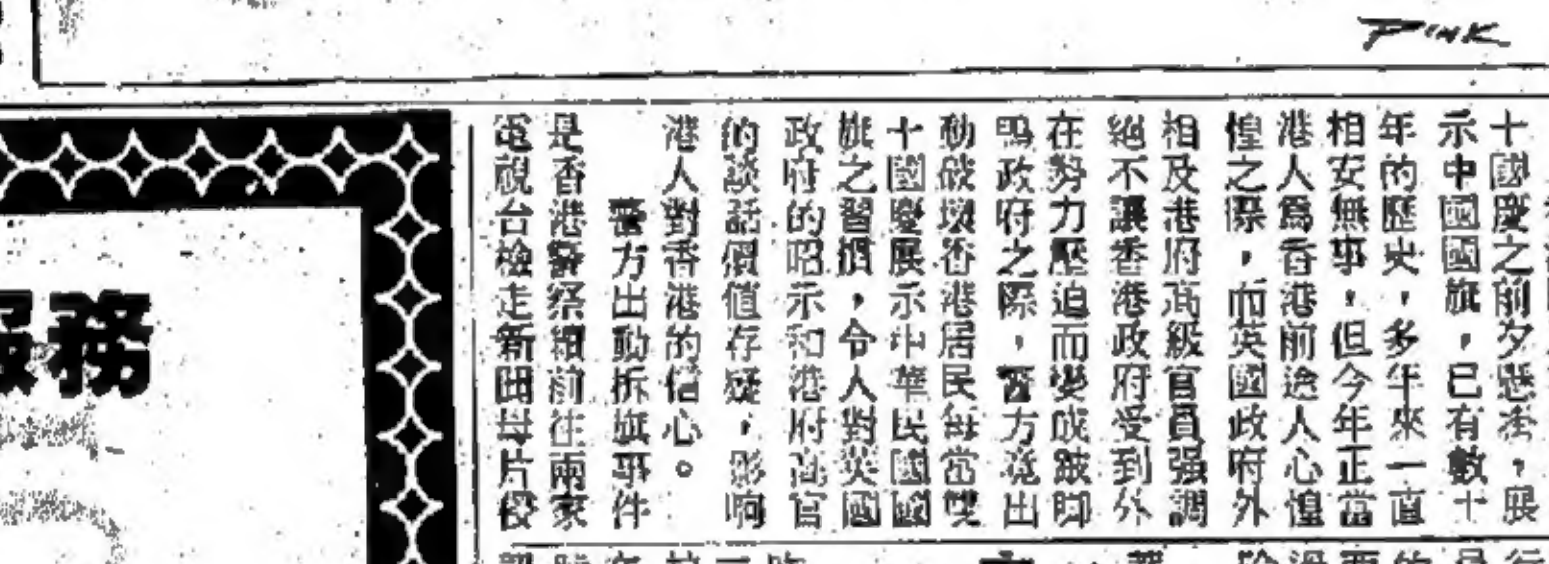 PINK
十國慶之前夕懸掛，展
示中國國旗，已有數十
年的歷史，多年來一直
相安無事，但今年正當
港人爲香港前途人心惶
惶之際，而英國政府外
相及港府高級官員强調
絕不讓香港政府受到外
在努力壓迫而變成跛脚
鴨政府之際，警方竟出
動破壞香港居民每當雙
十國慶展示中華民國國
旗之習慣，令人對英國
政府的昭示和港府高官
的談話價值存疑，影响
港人對香港的信心。
警方出動拆旗事件
是香港警察續前往兩家
電視台檢走新聞片
服務